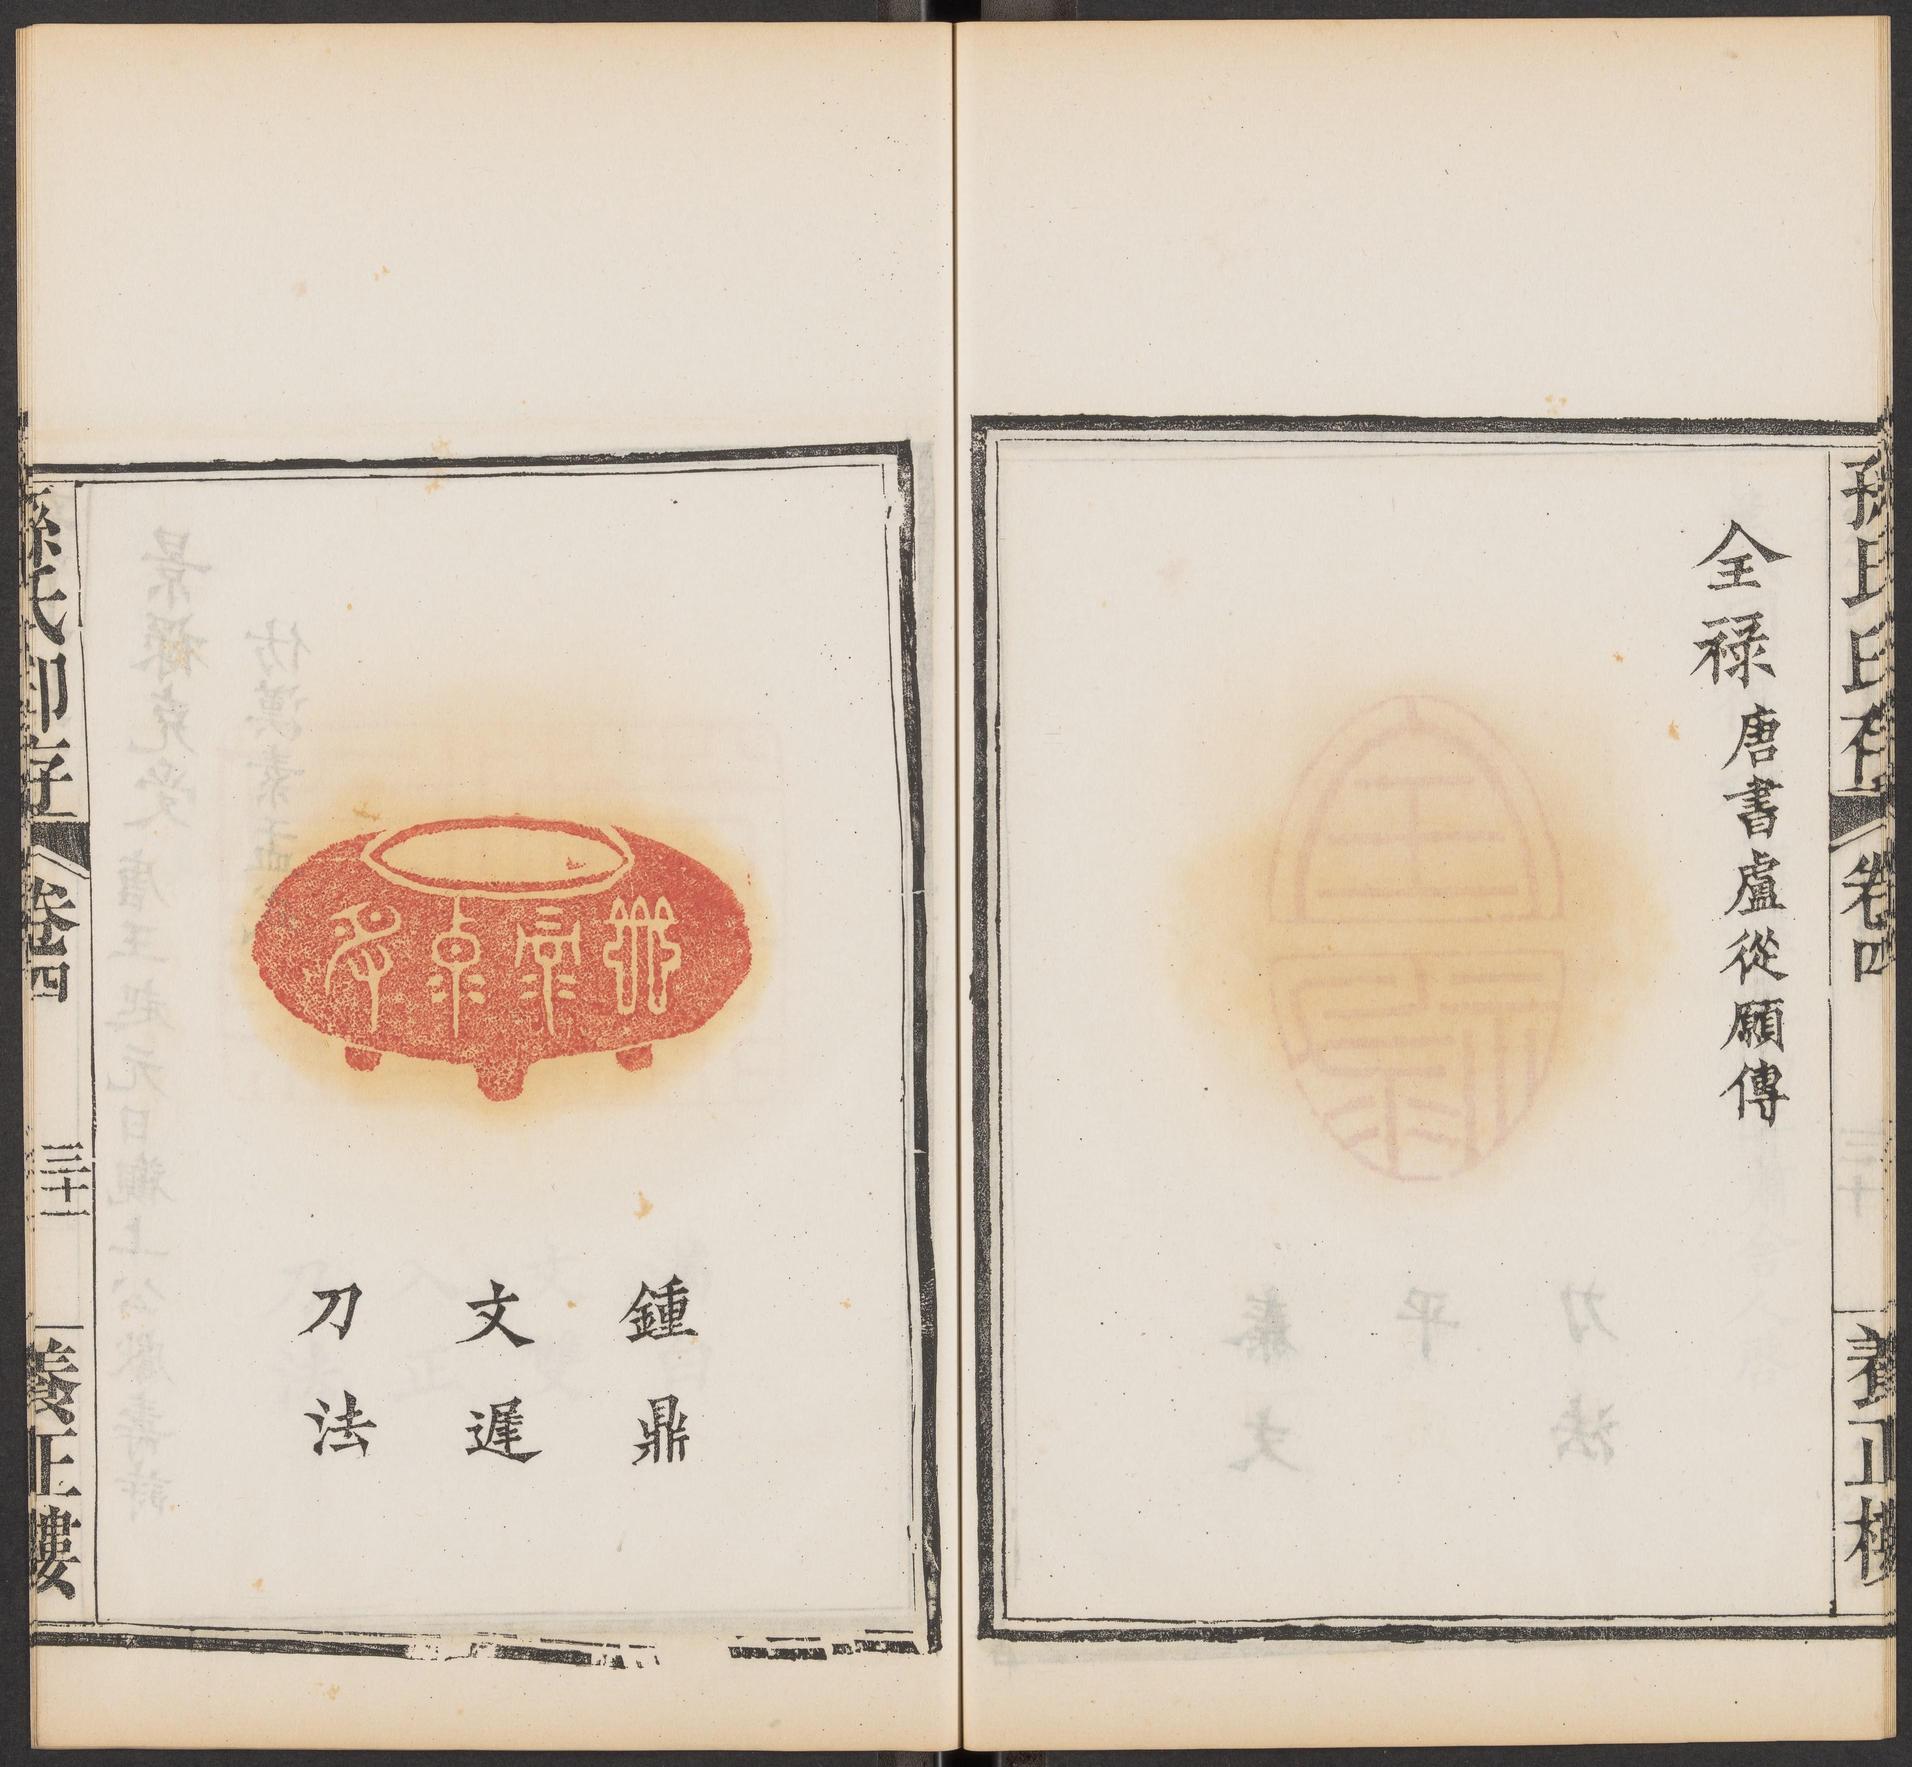 孫氏印存 卷四 養正樓
全祿 唐書盧從願傳
鍾鼎
文遲
刀法
孫氏印存 卷四 三十一 養正樓